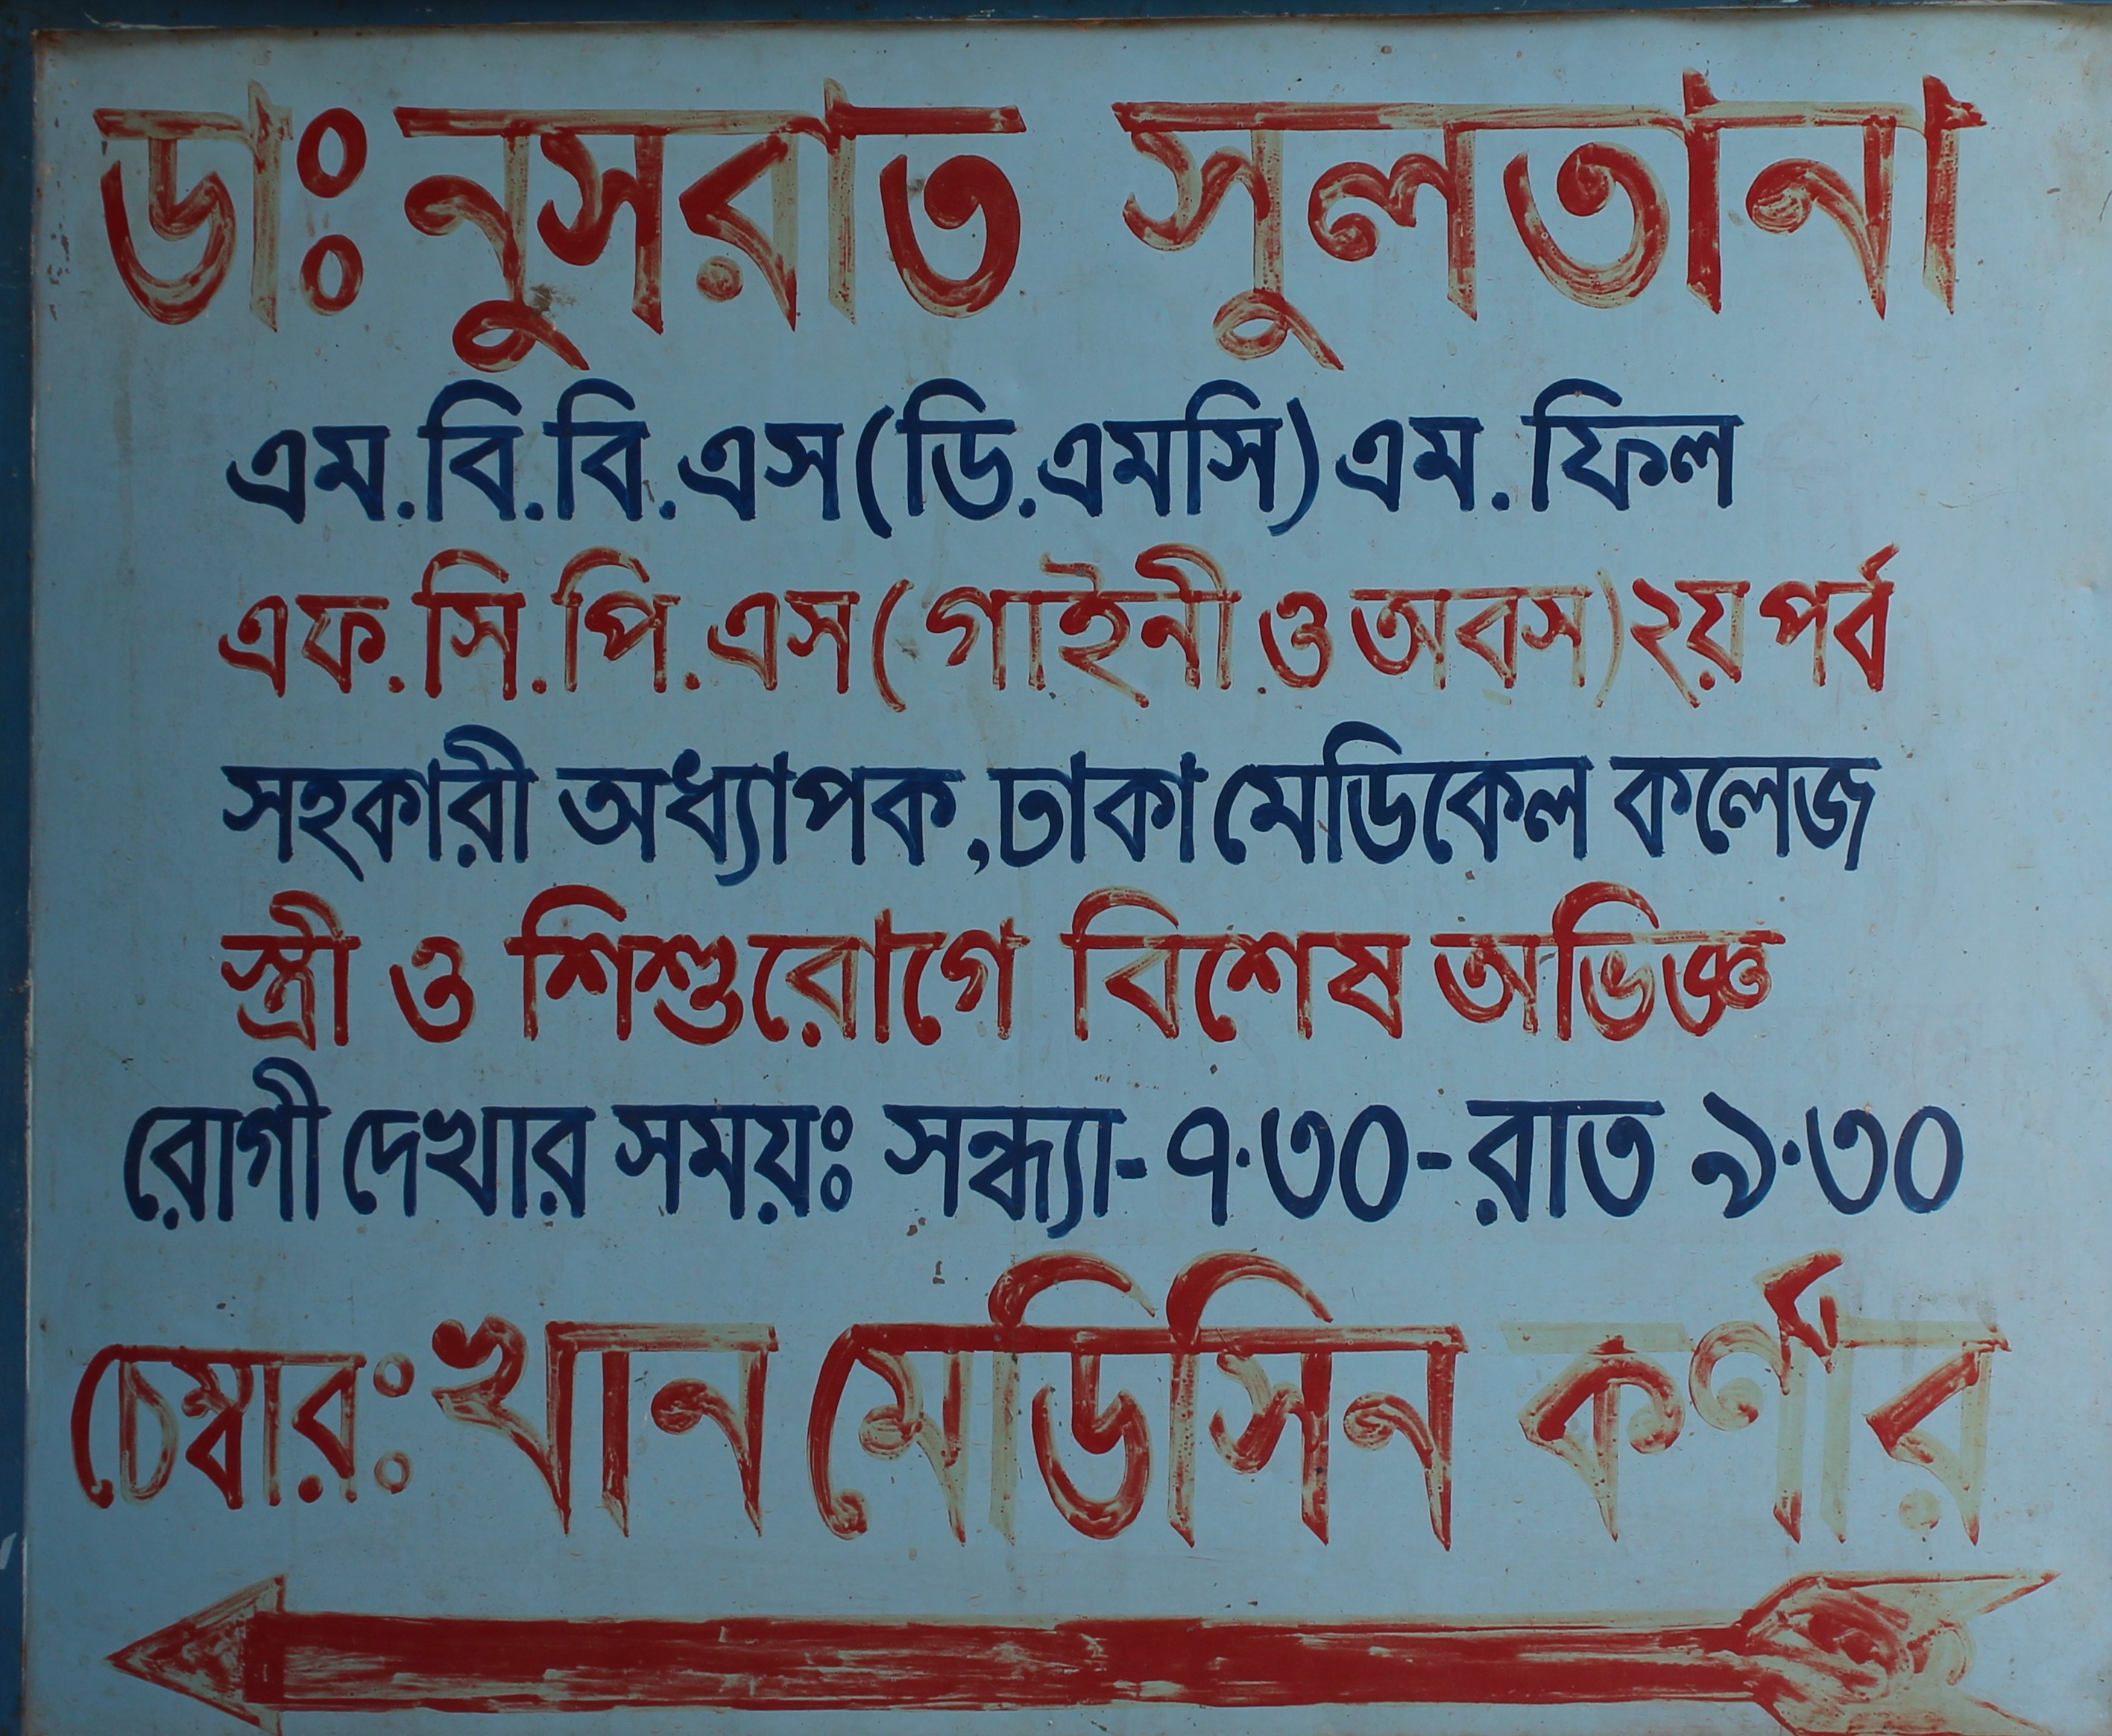 ডাঃ নুসরাত সুলতানা
এম.বি.বি.এস(ডি.এমসি)এম.ফিল
এফ.সি.পি.এস(গাইনী ও অবস)২য় পর্ব
সহকারী অধ্যাপক,ঢাকা মেডিকেল কলেজ
স্ত্রী ও শিশুরোগে বিশেষ অভিজ্ঞ
রোগী দেখার সময়ঃ সন্ধ্যা-৭.৩০-রাত ৯.৩০
চেম্বারঃ খান মেডিসিন কর্ণার